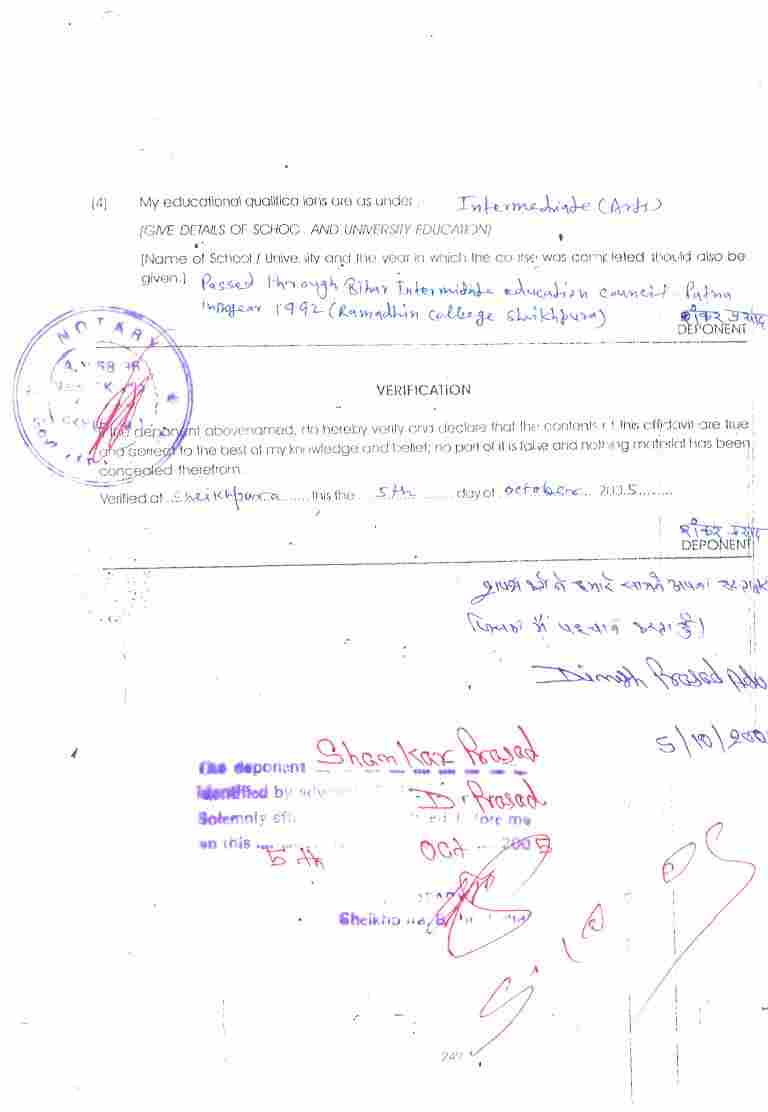 (4) My educational qualifications are as under Intermediate (Arts)
(GIVE DETAILS OF SCHOOL AND UNIVERSITY EDUCATION)
[Name of School / University and the year in which the course was completed should also be
given.] Passed through Bihar Intermidiate education council Patna
year 1992 (Ramadhin college Sheikhpura)
शंकर प्रसाद
DEPONENT
NOTARY
VERIFICATION
I the deponent abovenamed, do hereby verify and declare that the contents of this affidavit are true
and correct to the best of my knowledge and belief; no part of it is false and nothing material has been
concealed therefrom
Verified at Sheikhpura ...... this the 5th ........ day of october ... 2005 ........
शंकर प्रसाद
DEPONENT
Dinesh Prasad Adv
5/10/200
The deponent Shankar Prasad
Identified by D. Prasad
Solemnly before me
on this 5th Oct 2005
5.10.05
247